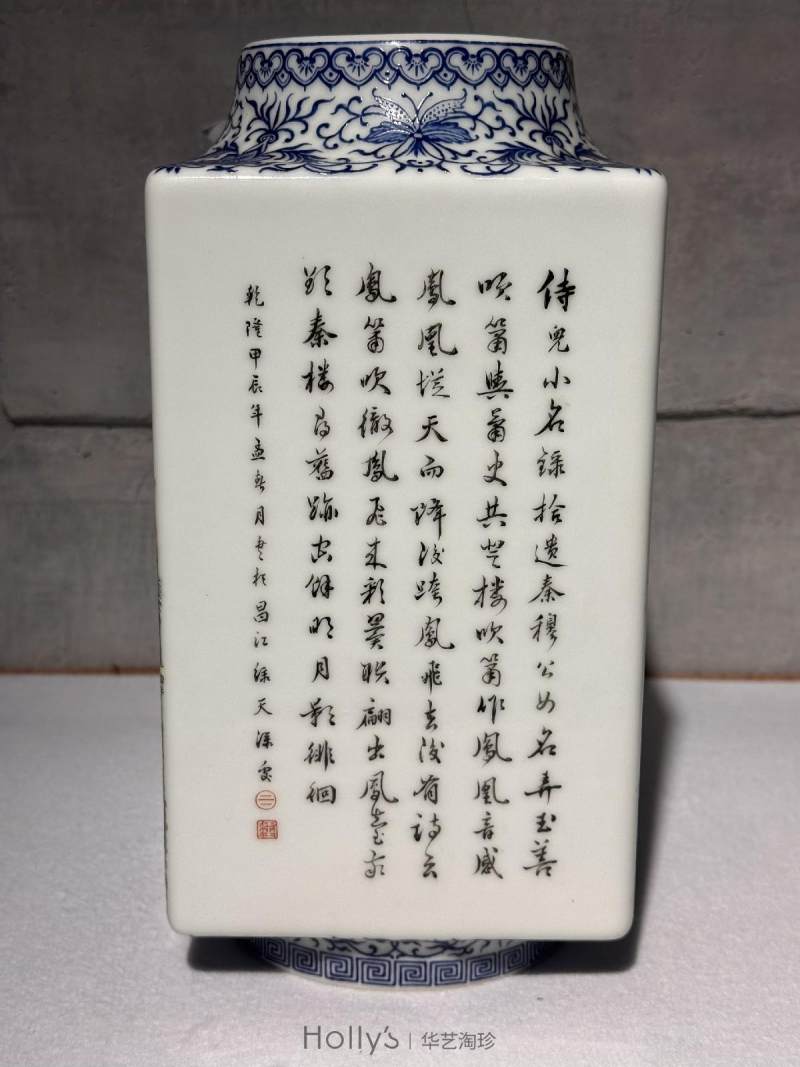 侍兒小名錄拾遺秦穆公女名弄玉善
吹簫與蕭史共登楼吹簫作鳳凰音感
鳳凰從天而降後跨鳳飛去後有詩云
鳳簫吹徹鳳飛来彩翼聯翩出鳳臺
秦楼尋舊跡空餘明月影徘徊
乾隆甲辰年孟春月書於昌江綠天深處
Holly's | 华艺淘珍